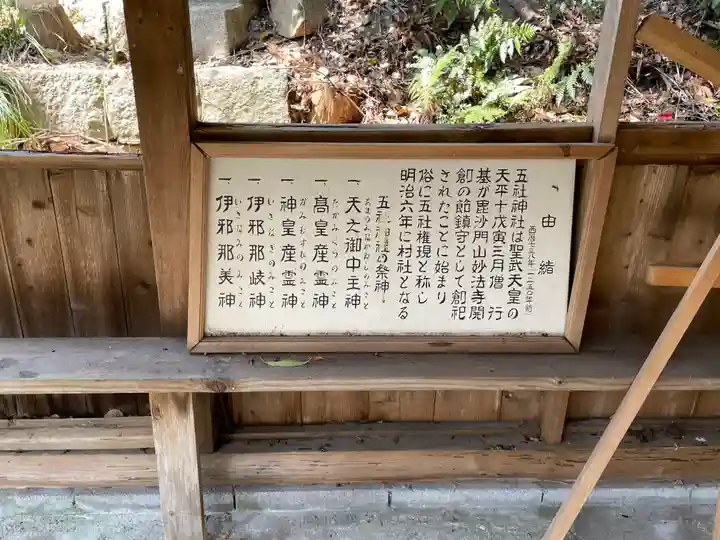 一 由緒
五社神社は聖武天皇の
天平十戊寅三月僧 行
基が毘沙門山妙法寺開
創の節鎮守として創祀
されたことに始まり
俗に五社権現と称し
明治六年に村社となる
五社神社の祭神
あめのみなかぬしのみこと
一、天之御中主神
たかみくらのみこと
一、高皇産霊神
かみむすひのみこと
一、神皇産霊神
いさなぎのみこと
一、伊邪那岐神
いさなみのみこと
一、伊邪那美神